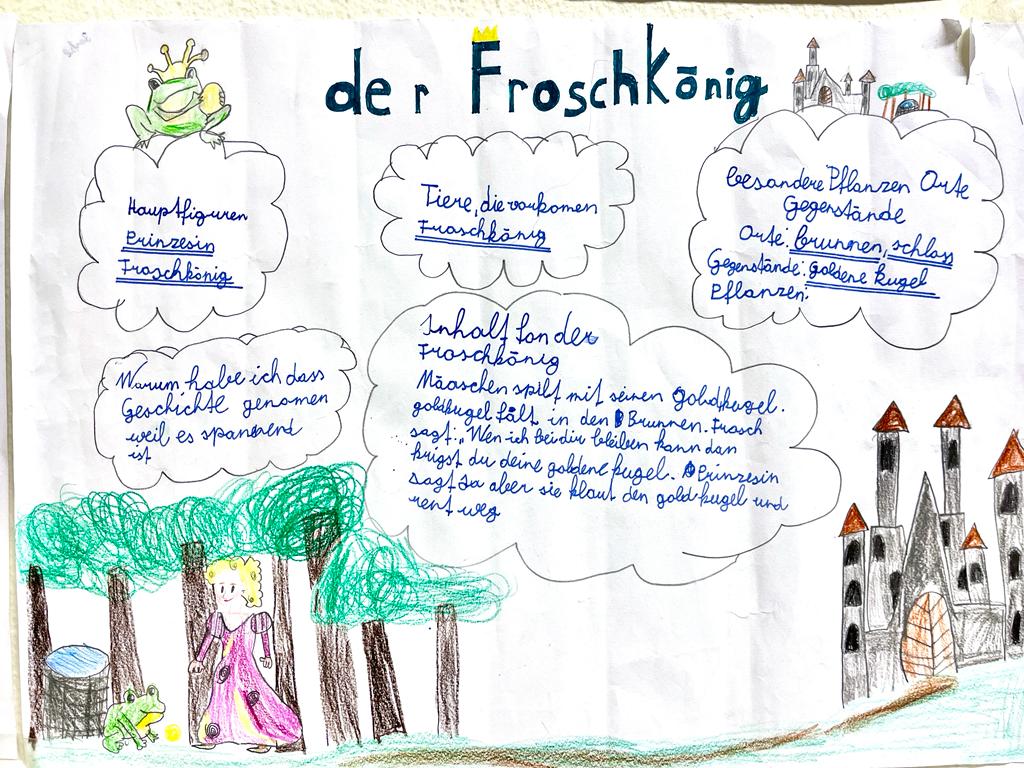 der Froschkönig
Hauptfiguren
Prinzesin
Froschkönig
Tiere, die vorkomen
Froschkönig
besondere Pflanzen Orte
Gegenstände
Orte: brunnen, schloss
Gegenstände: goldene kugel
Pflanzen:
Warum habe ich dass
Geschichte genomen
weil es spannend
ist
Inhalt fon der
Froschkönig
Mäaschen spilt mit seinen Goldkugel.
goldkugel fält in den Brunnen. Frosch
sagt: „Wen ich bei dir bleiben kann dan
krigst du deine goldene kugel. Prinzesin
sagt Ja aber sie klaut den gold-kugel und
rent weg